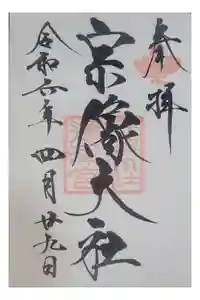 奉拝
宗像大社
令和六年四月廿九日